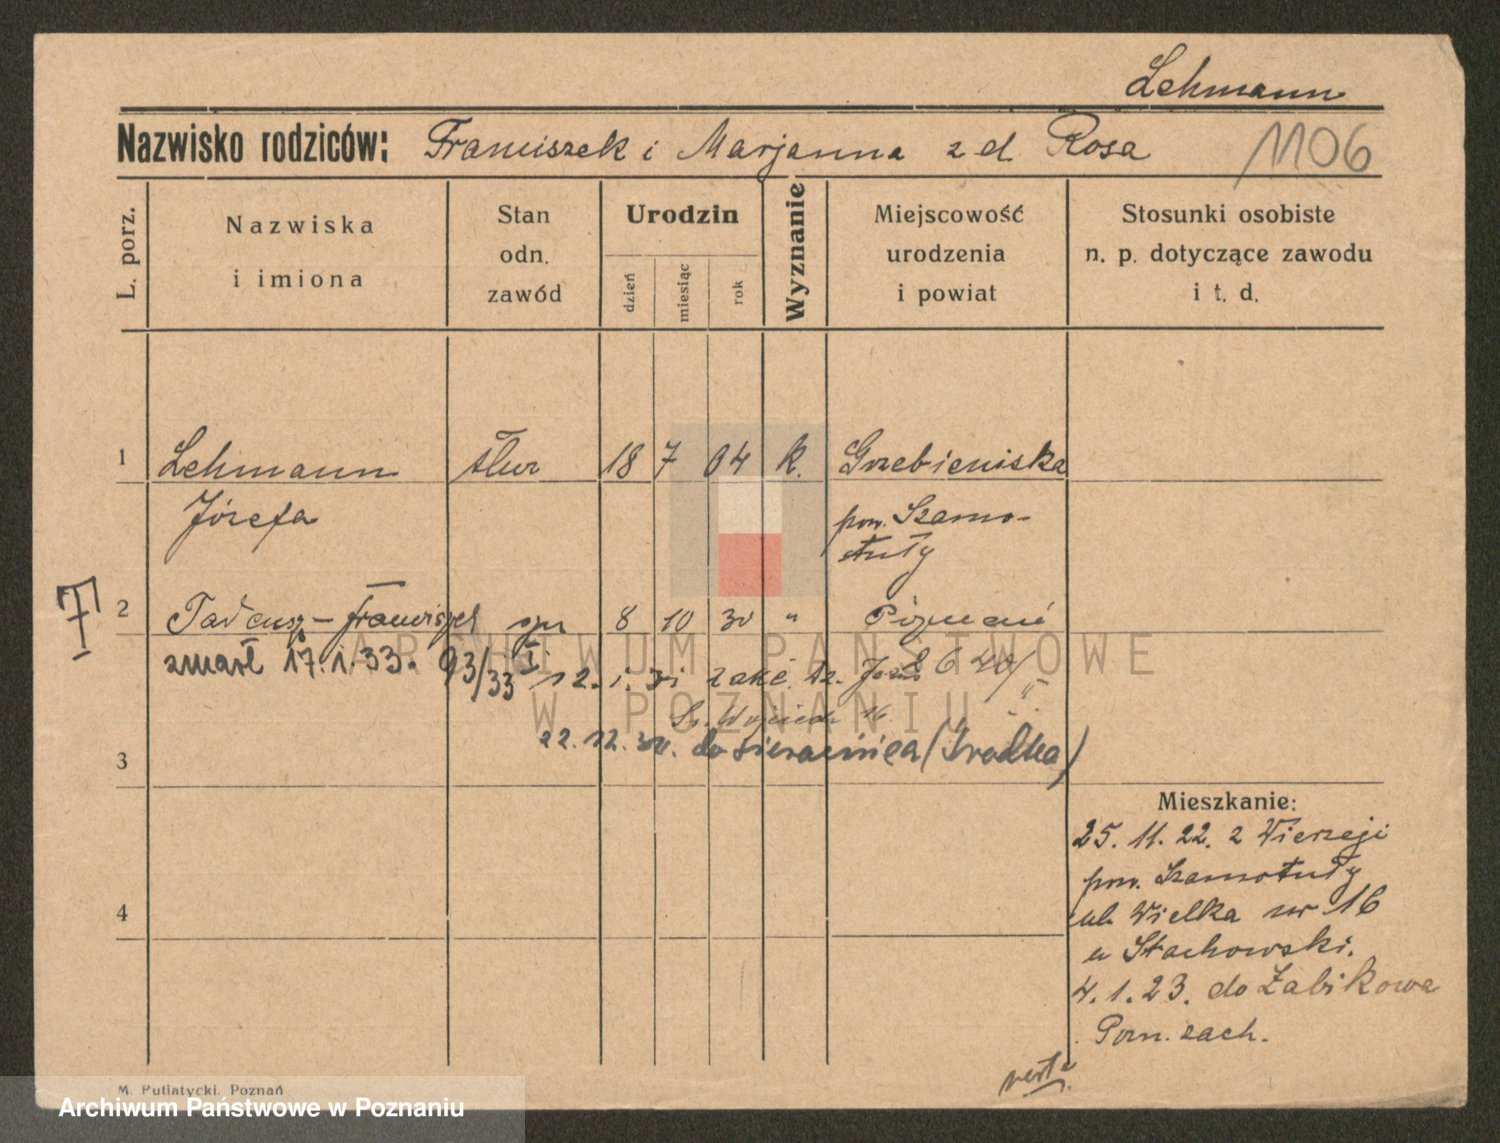 Lehmann
Nazwisko rodziców: Franciszek i Marjanna z d. Rosa
1106
L. porz.
Nazwiska
i imiona
Stan
odn.
zawód
Urodzin
dzień
miesiąc
rok
Wyznanie
Miejscowość
urodzenia
i powiat
Stosunki osobiste
n. p. dotyczące zawodu
i t. d.
1 Lehmann 18 7 04 k. Grzebieniska
Józefa pow. Szamo-
tuły
2 Tadeusz-Franciszek syn 8 10 30 " Poznań
zmarł 17.1.33. 93/33 I
12. 1. 31 zakł.
Św. Wojciech 16
22.12. do Sieracińca (Środka)
3
Mieszkanie:
25. 11. 22. z Wierzeji
pow. Szamotuły
ul. Wielka nr 16
u Stachowski.
4. 1. 23. do Żabikowa
Pozn. zach.
4
verte
M. Putiatycki, Poznań
ARCHIWUM PAŃSTWOWE
W POZNANIU
Archiwum Państwowe w Poznaniu